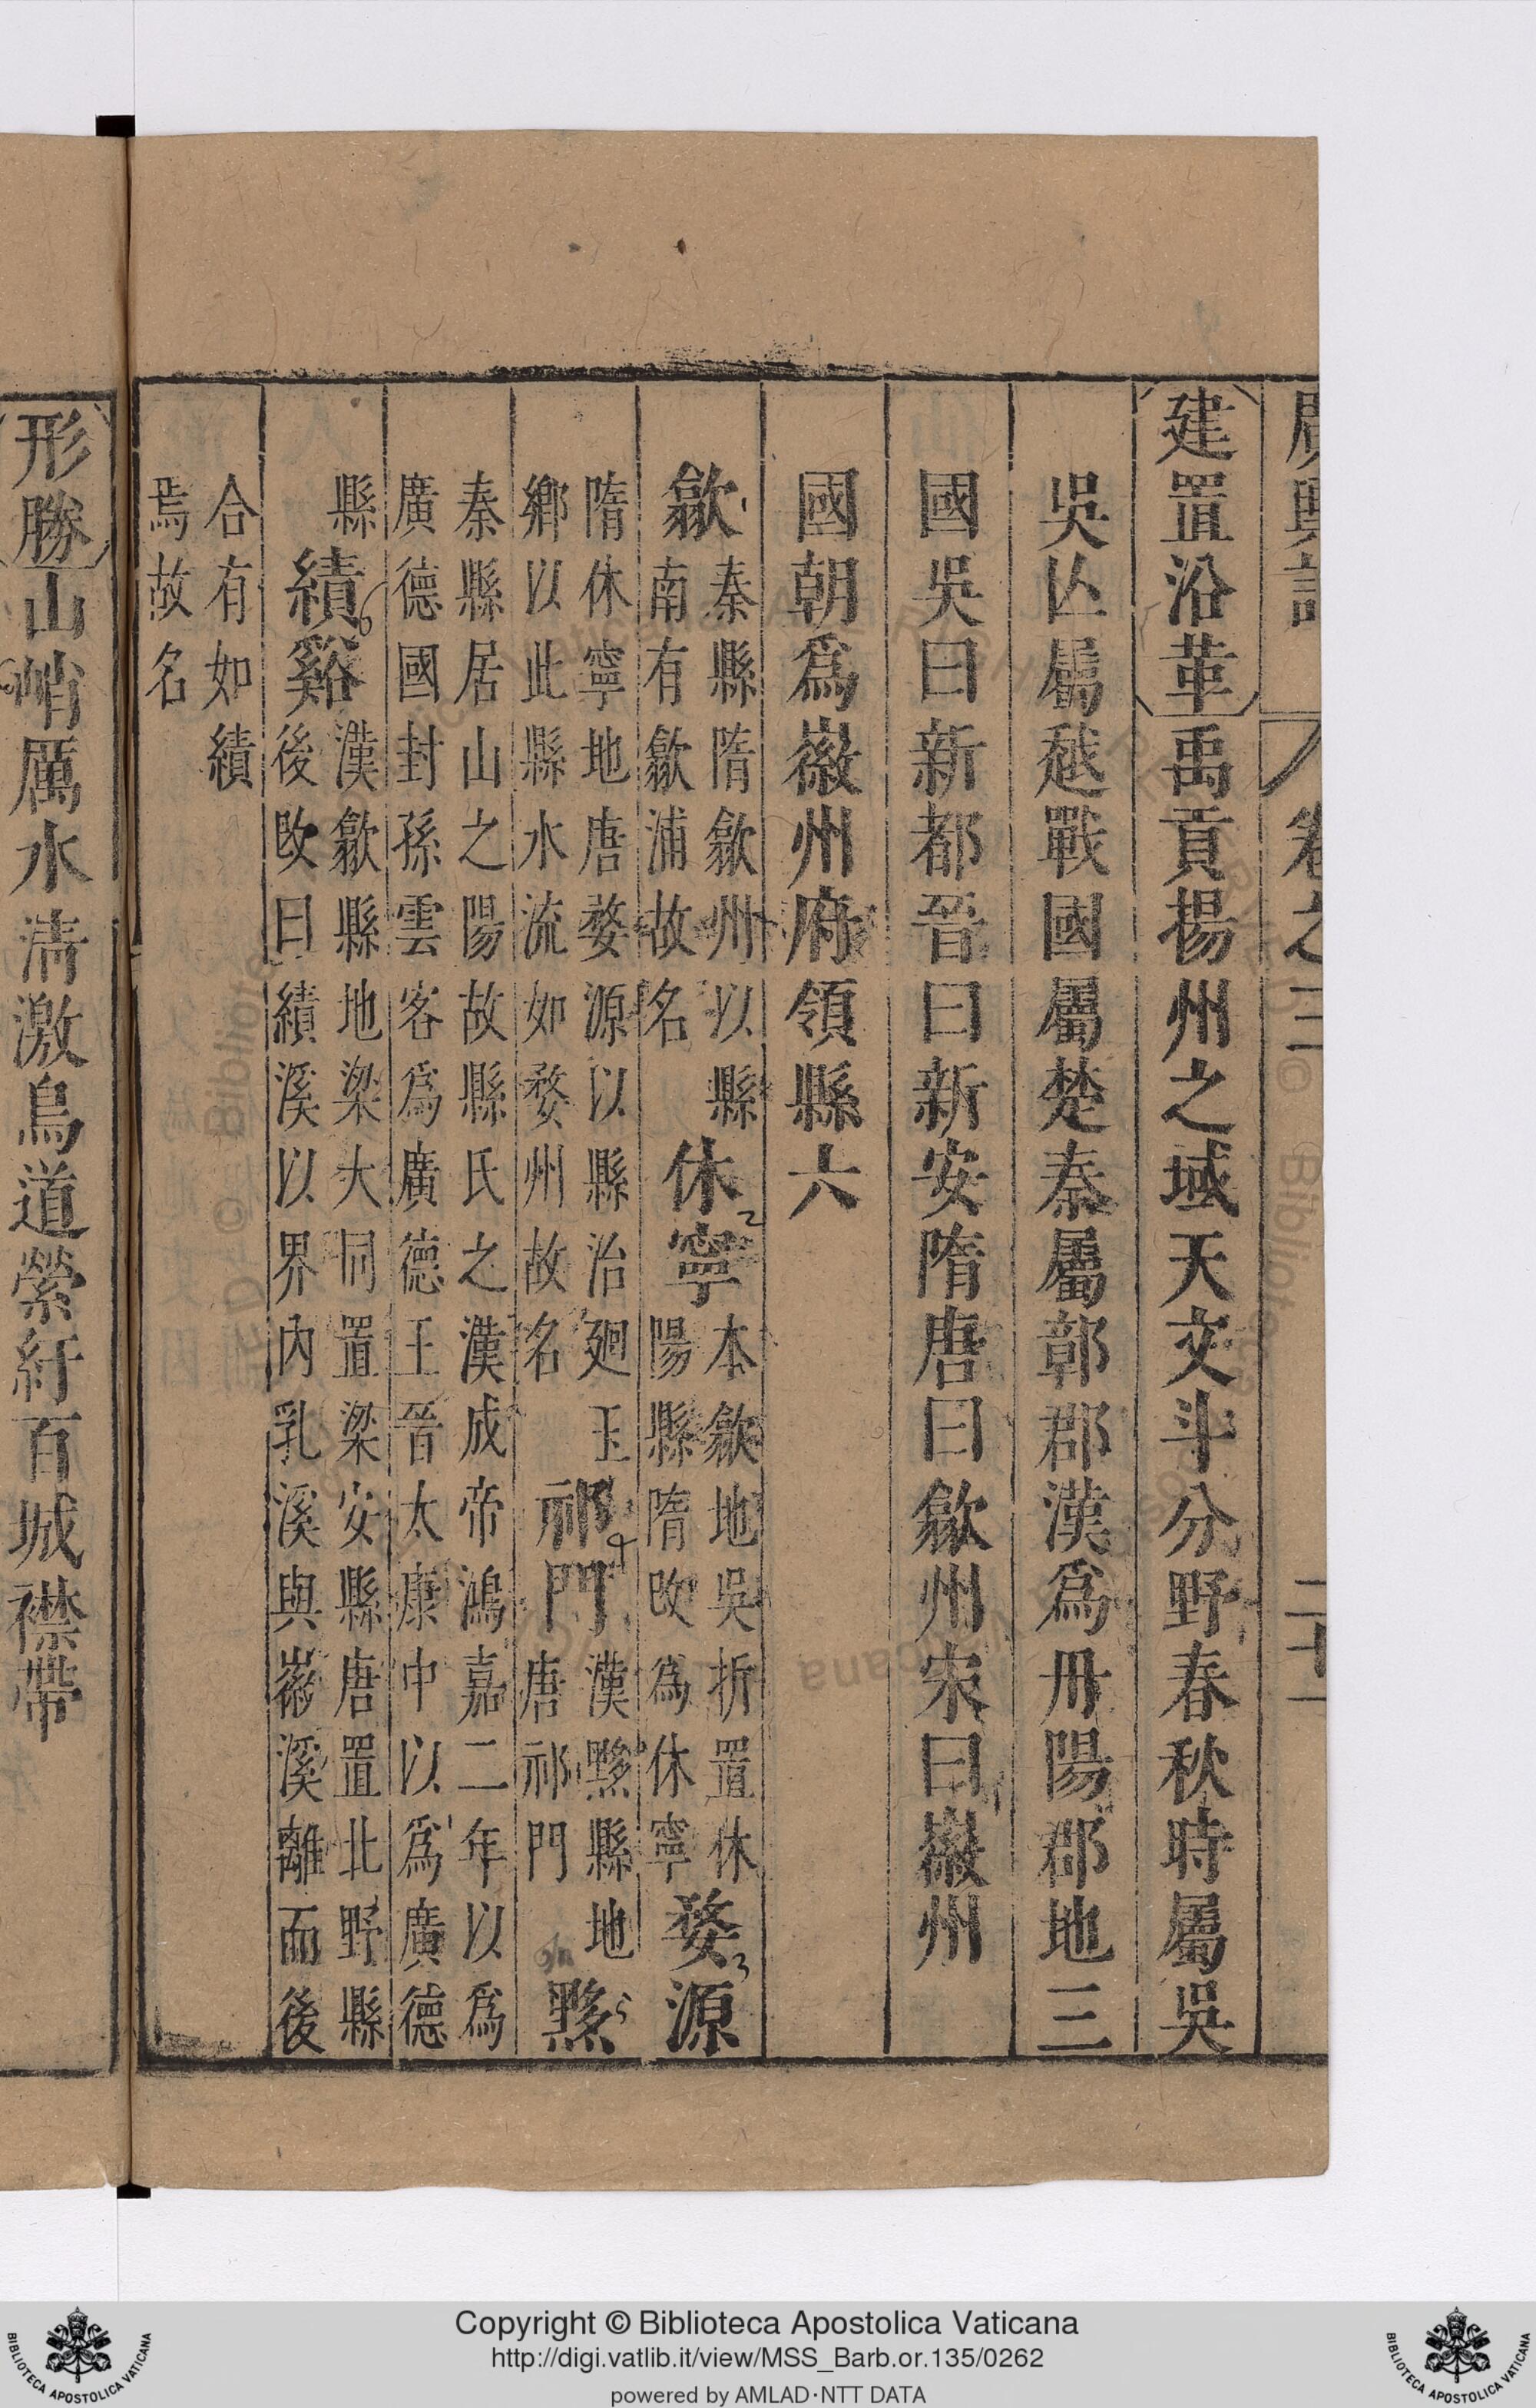 廣輿記 卷之三 二十一
建置沿革禹貢揚州之域天文斗分野春秋時屬吳
吳亾屬越戰國屬楚秦屬鄣郡漢爲丹陽郡地三
國吳曰新都晉曰新安隋唐曰歙州宋曰徽州
國朝爲徽州府領縣六
歙1秦縣隋歙州以縣南有歙浦故名休2寧本歙地吳折置休陽縣隋改爲休寧婺3源
隋休寧地唐婺源以縣治廻玉鄉以此縣水流如婺州故名祁4門漢黟縣地唐祁門黟5
秦縣居山之陽故縣氏之漢成帝鴻嘉二年以爲廣德國封孫雲客爲廣德王晉太康中以爲廣德
縣績6谿漢歙縣地梁大同置梁安縣唐置北野縣後改曰績溪以界內乳溪與徽溪離而後
合有如績焉故名
形勝山峭厲水清激鳥道縈紆百城襟帶
Copyright © Biblioteca Apostolica Vaticana
http://digi.vatlib.it/view/MSS_Barb.or.135/0262
powered by AMLAD·NTT DATA
BIBLIOTECA APOSTOLICA VATICANA
BIBLIOTECA APOSTOLICA VATICANA